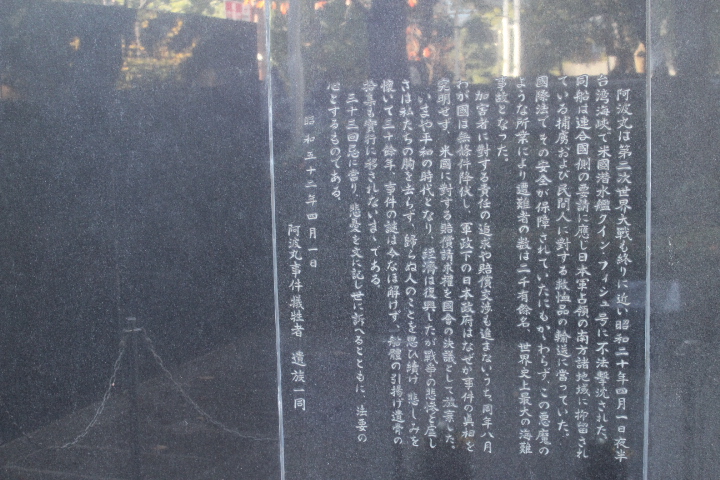 阿波丸は第二次世界大戦も終りに近い昭和二十年四月一日夜半
台湾海峡で米国潜水艦クイン・フィシュ号に不法撃沈された
同船は連合国側の要請に應じ日本軍占領の南方諸地域に抑留され
ている捕虜および民間人に対する救恤品の輸送に當っていた。
国際法でその安全が保障されていたにもかゝわらず、この悪魔の
ような所業により遭難者の数は二千有餘名、世界史上最大の海難
事故となった。
加害者に対する責任の追求や賠償交渉も進まないうち、同年八月
わが國は無條件降伏し、軍政下の日本政府はなぜか事件の真相を
究明せず、米國に対する賠償請求權を國會の決議として放棄した。
いまや平和の時代となり、経済は復興したが戦争の悲惨と虚し
さは私たちの胸を去らず、歸らぬ人のことを思ひ続け悲しみを
懐いて三十餘年、事件の謎は今なほ解けず、船體の引揚げ遺骨の
拾集も實行に移されないまゝである。
三十三回忌に當り、悲憂を文に記し世に訴へるとともに、法要の
心とするものである。
昭和五十二年四月一日
阿波丸事件犠牲者 遺族一同